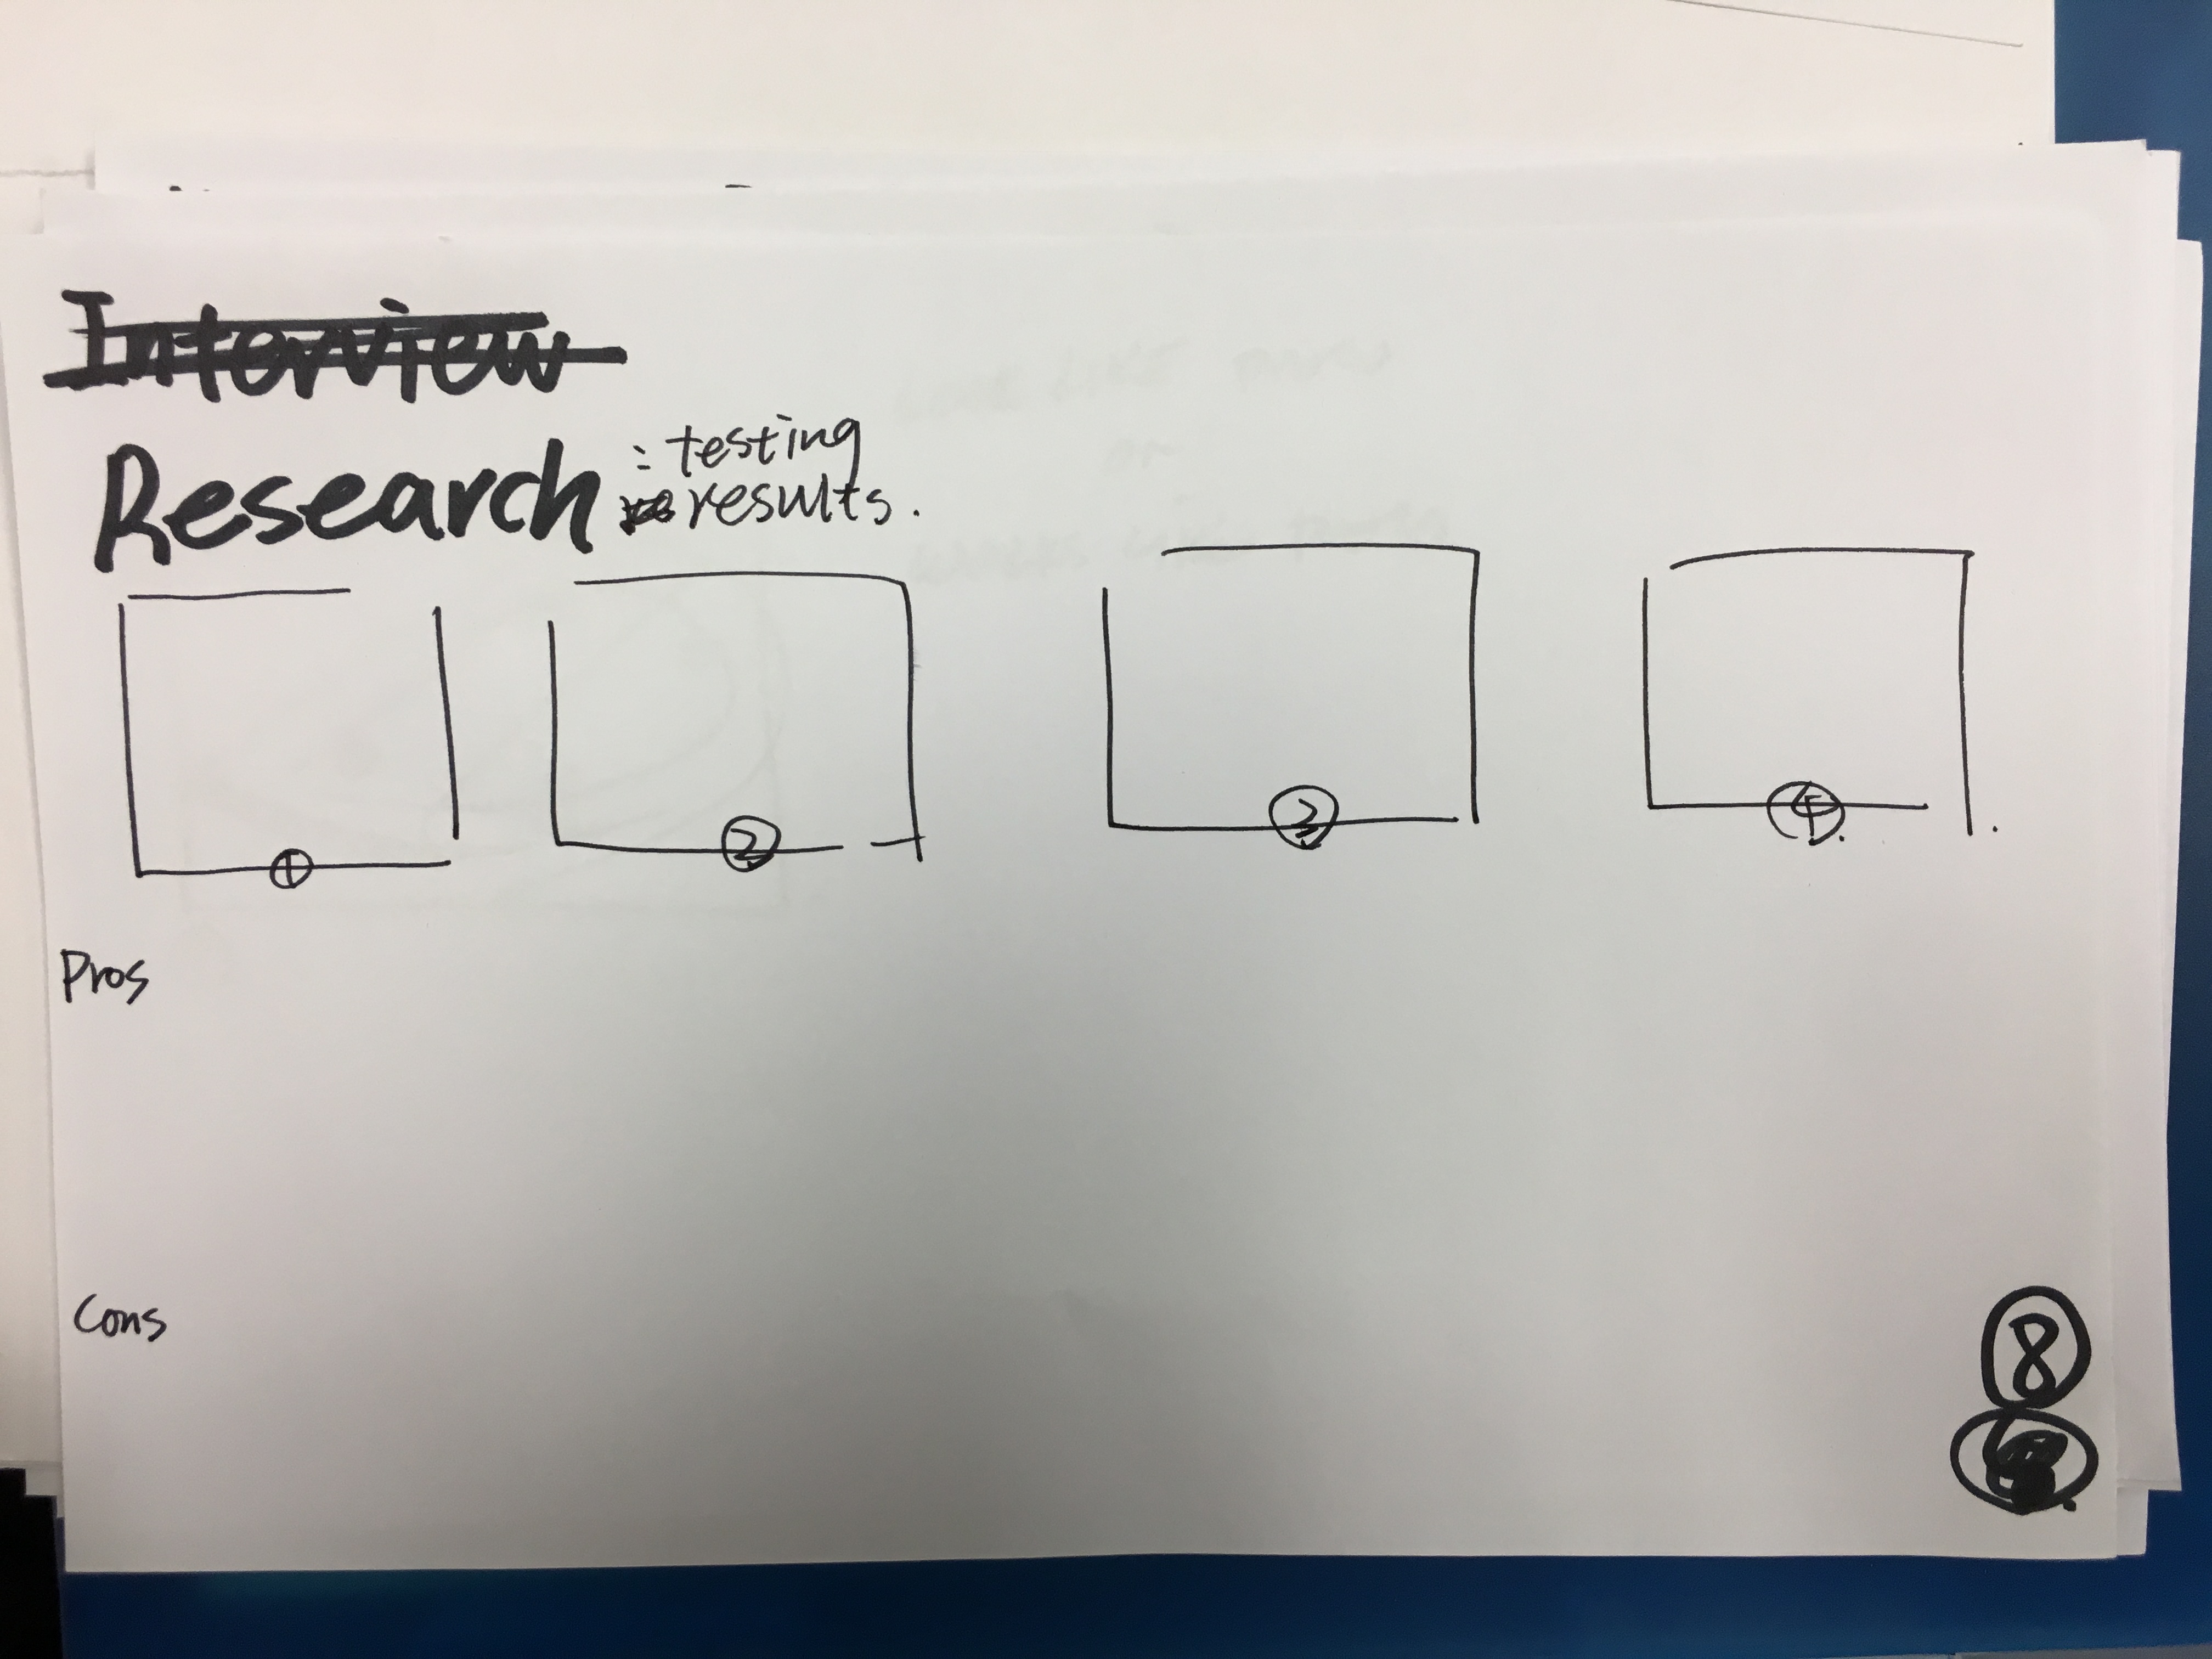 Interview
Research : testing
results.
1
2
4
Pros
Cons
8